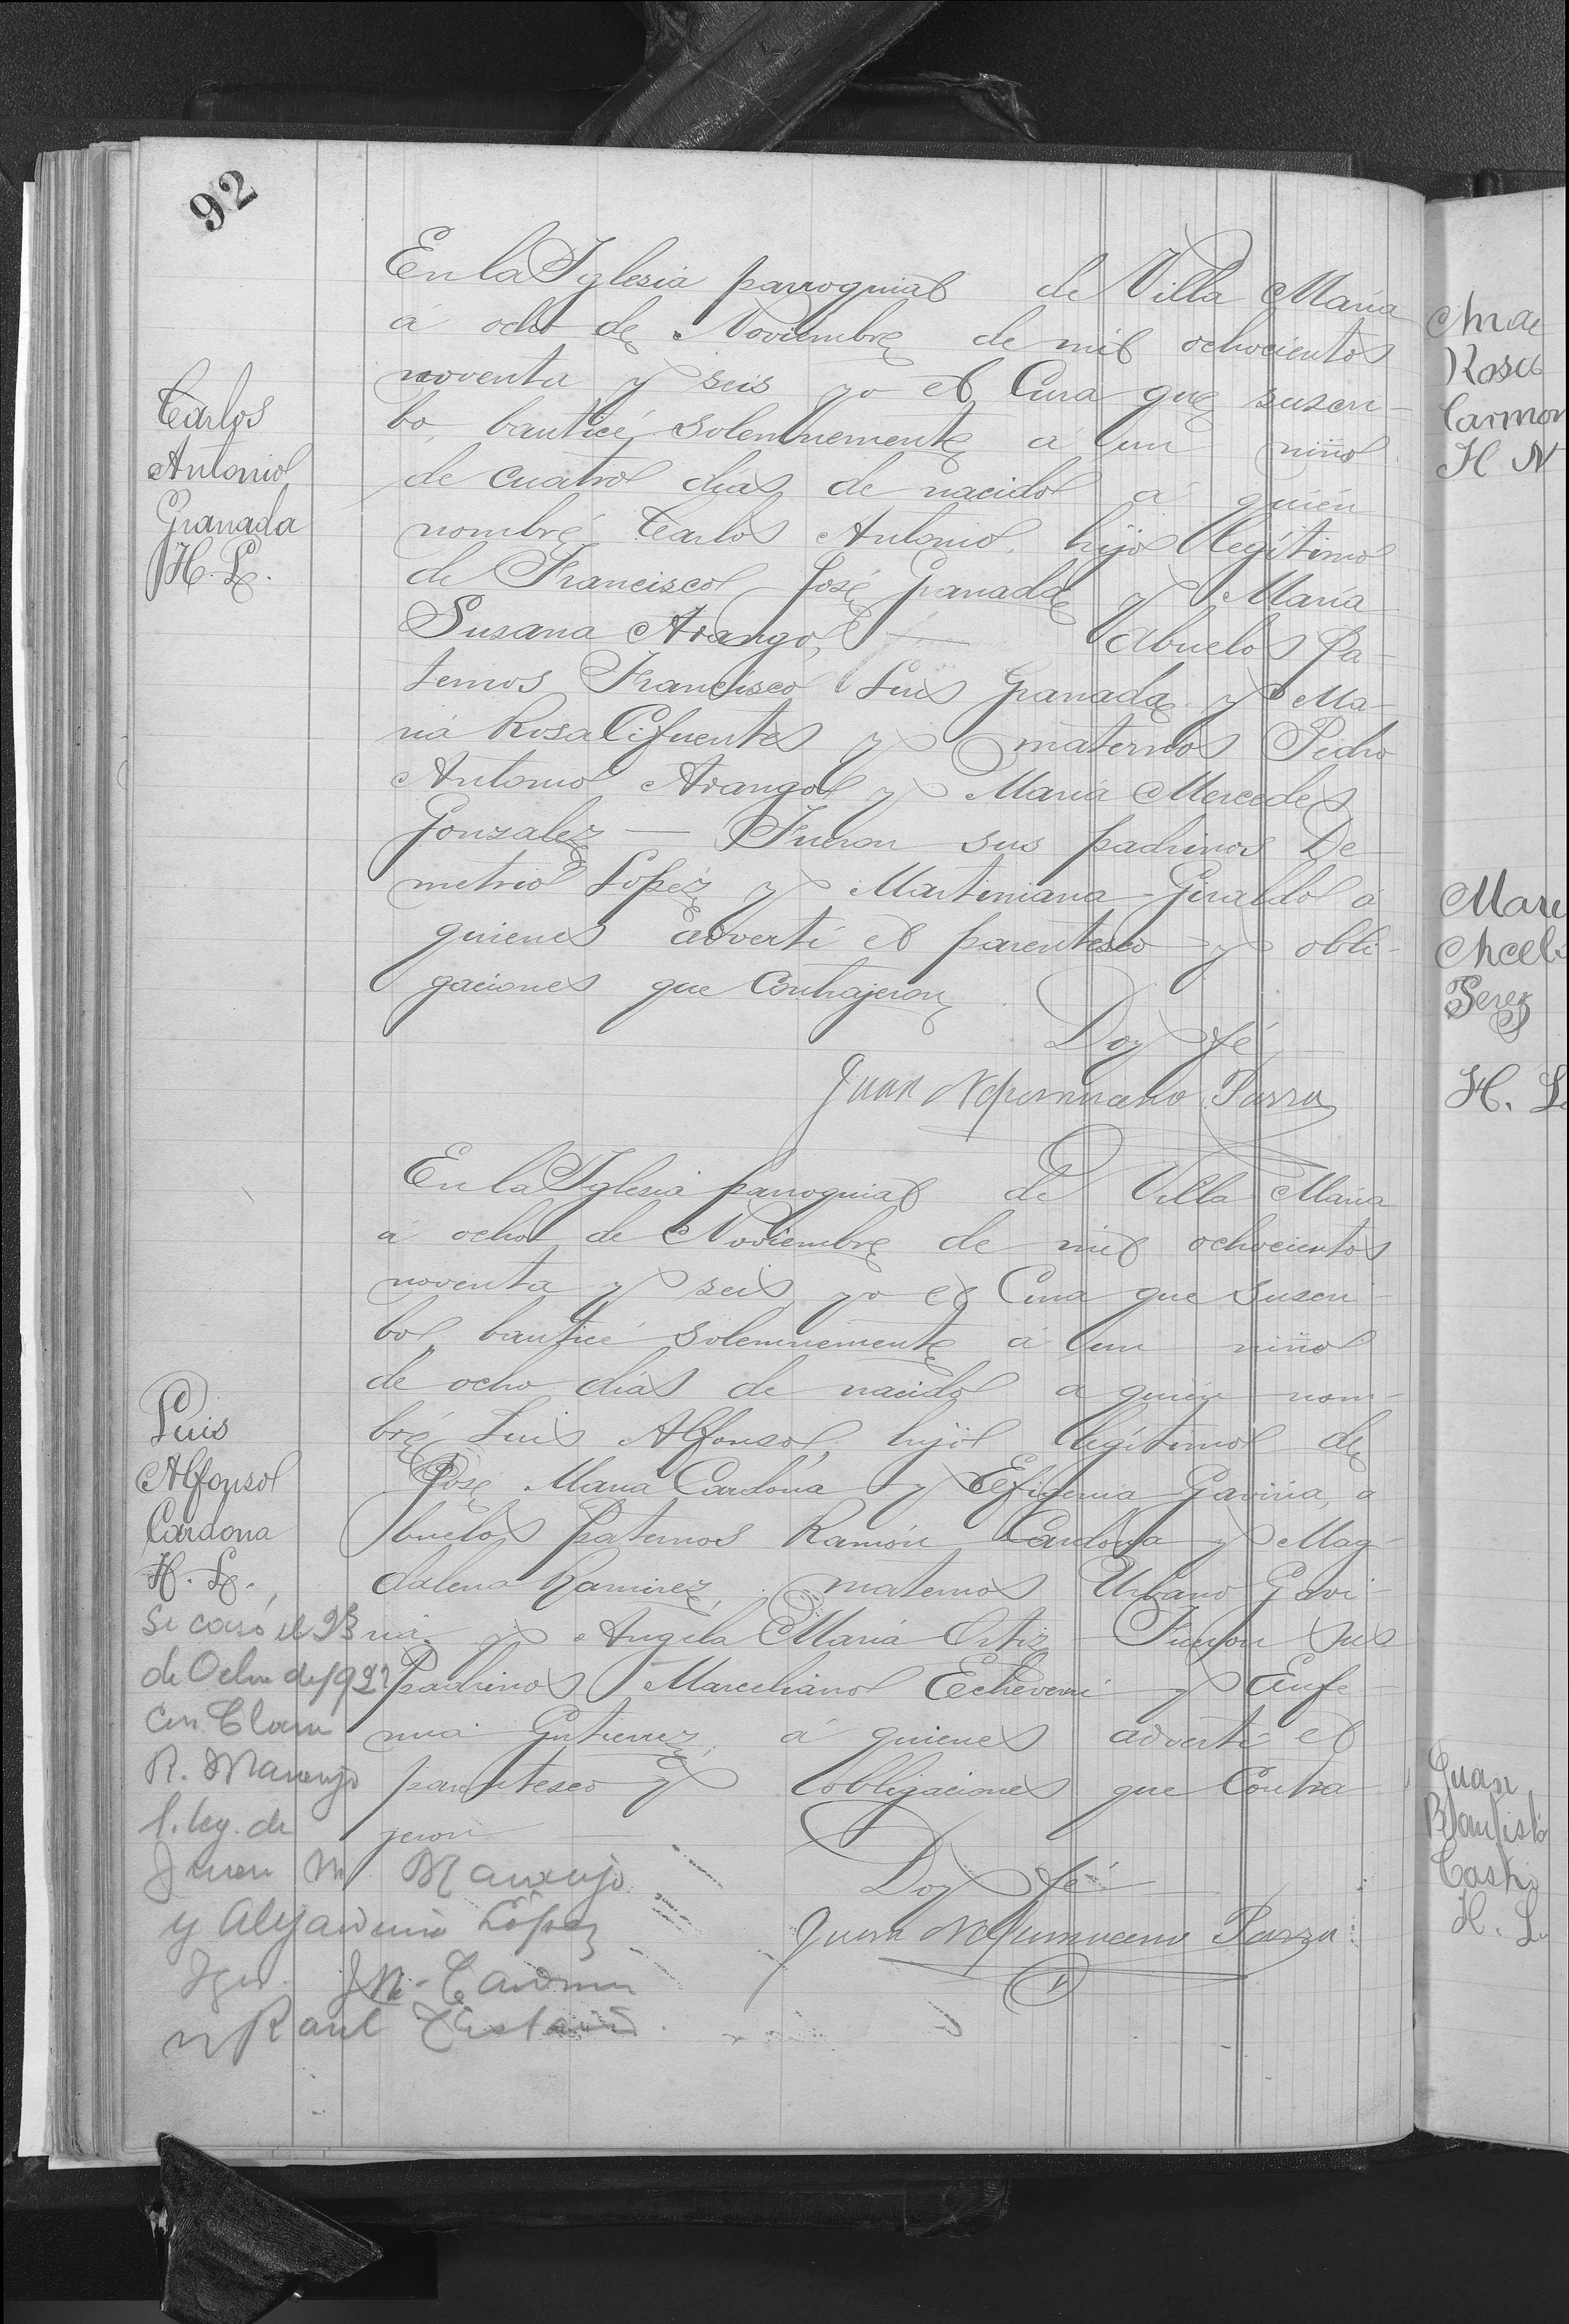 92
En la Iglesia parroquial de Villa María
á ocho de Noviembre de mil ochocientos
noventa y seis yo el Cura que suscri-
bo, bauticé solemnemente á un niño
de cuatro días de nacido á quién
nombré Carlos Antonio, hijo legítimo
de Francisco José Granada y María
Susana Arango, — Abuelos pa-
ternos Francisco Luis Granada y Ma-
ría Rosa Cifuentes y maternos Pedro
Antonio Arango y María Mercedes
Gonzalez — Fueron sus padrinos De-
metrio López y Martiniana Giraldo á
quienes advertí el parentesco y obli-
gaciones que contrajeron
Doy fé
Juan Nepomuceno Parra
Carlos
Antonio
Granada
H. L.
En la Iglesia parroquial de Villa María
á ocho de Noviembre de mil ochocientos
noventa y seis yo el Cura que suscri-
bo, bauticé solemnemente á un niño
de ocho días de nacido a quién nom-
bré Luis Alfonso, hijo legítimo de
José María Cardona y Efigenia Gaviria, a
buelos paternos Ramón Cardona y Mag-
dalena Ramirez, maternos Urbano Gavi-
ria y Angela María Ortiz — Fueron sus
Padrinos Marceliano Echeverri y Eufe-
mia Gutierrez, á quienes advertí el
parentesco y obligaciones que contra-
jeron
Doy fé
Juan Nepomuceno Parra
Luis
Alfonso
Cardona
H. L.
Se casó el 23
de Octbre de 192
con Clara
R. Naranjo
l. leg. de
Juan M Naranjo
y Alejandrina López
J M.
y Raul
Rosa
Carmon
H N
Marc
Perez
H. L
Juan
Bautista
Castr
H. L.